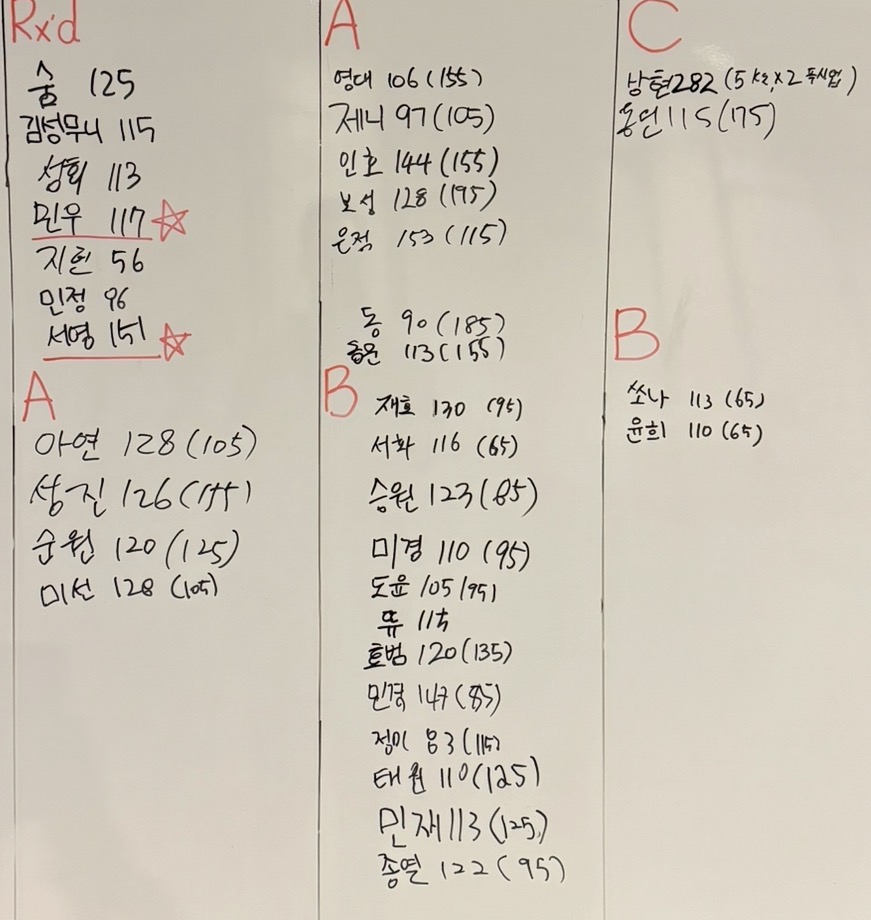 Rx'd
숨 125
김성무니 115
성회 113
민우 117
지현 56
민정 96
서영 151
A
아연 128 (105)
성진 126 (155)
순원 120 (125)
미선 128 (105)
A
영대 106 (155)
제니 97 (105)
인호 144 (155)
보성 128 (195)
은정 153 (115)
동 90 (185)
113 (155)
B
재효 130 (95)
서화 116 (65)
승원 123 (85)
미경 110 (95)
도윤 105 (95)
쀼 115
효범 120 (135)
민경 147 (85)
정미 83 (115)
태원 110 (125)
민재 113 (125)
종열 122 (95)
C
남현 282 (5 X 2 푸시업)
동언 115 (175)
B
쏘나 113 (65)
윤희 110 (65)